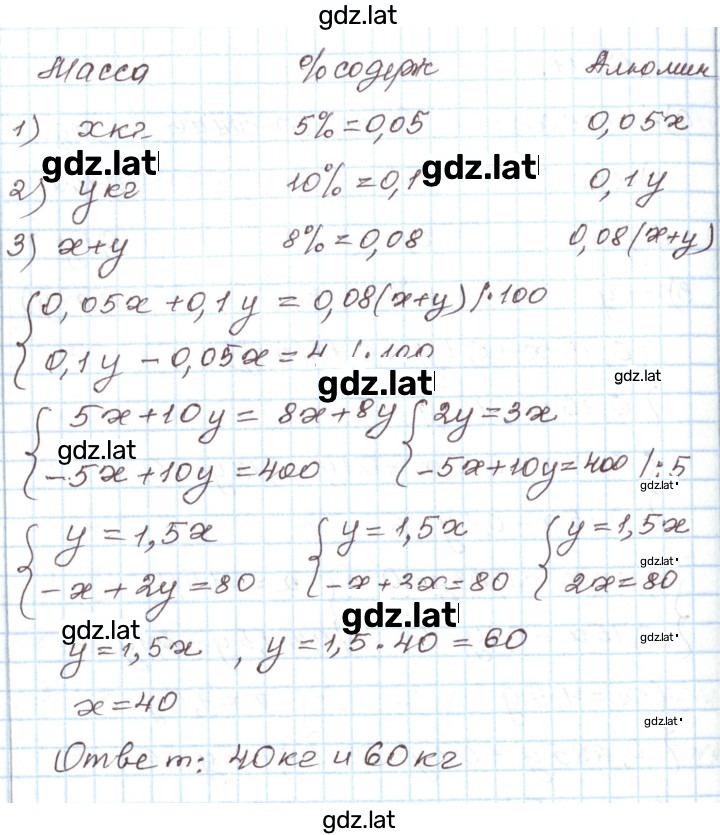 gdz.lat
Масса % содерж Алюмин
1) x кг 5% = 0,05 0,05x
gdz.lat
gdz.lat
2) y кг 10% = 0,1 0,1y
3) x+y 8% = 0,08 0,08(x+y)
0,05x + 0,1y = 0,08(x+y) /·100
0,1y - 0,05x = 4 /·100
gdz.lat
gdz.lat
5x+10y = 8x+8y 2y=3x
gdz.lat
-5x+10y=400 -5x+10y=400 /:5
gdz.lat
y=1,5x y=1,5x y=1,5x
gdz.lat
-x+2y=80 -x+3x=80 2x=80
gdz.lat
gdz.lat
gdz.lat
y=1,5x , y=1,5·40=60
x=40
gdz.lat
Ответ: 40кг и 60кг
gdz.lat